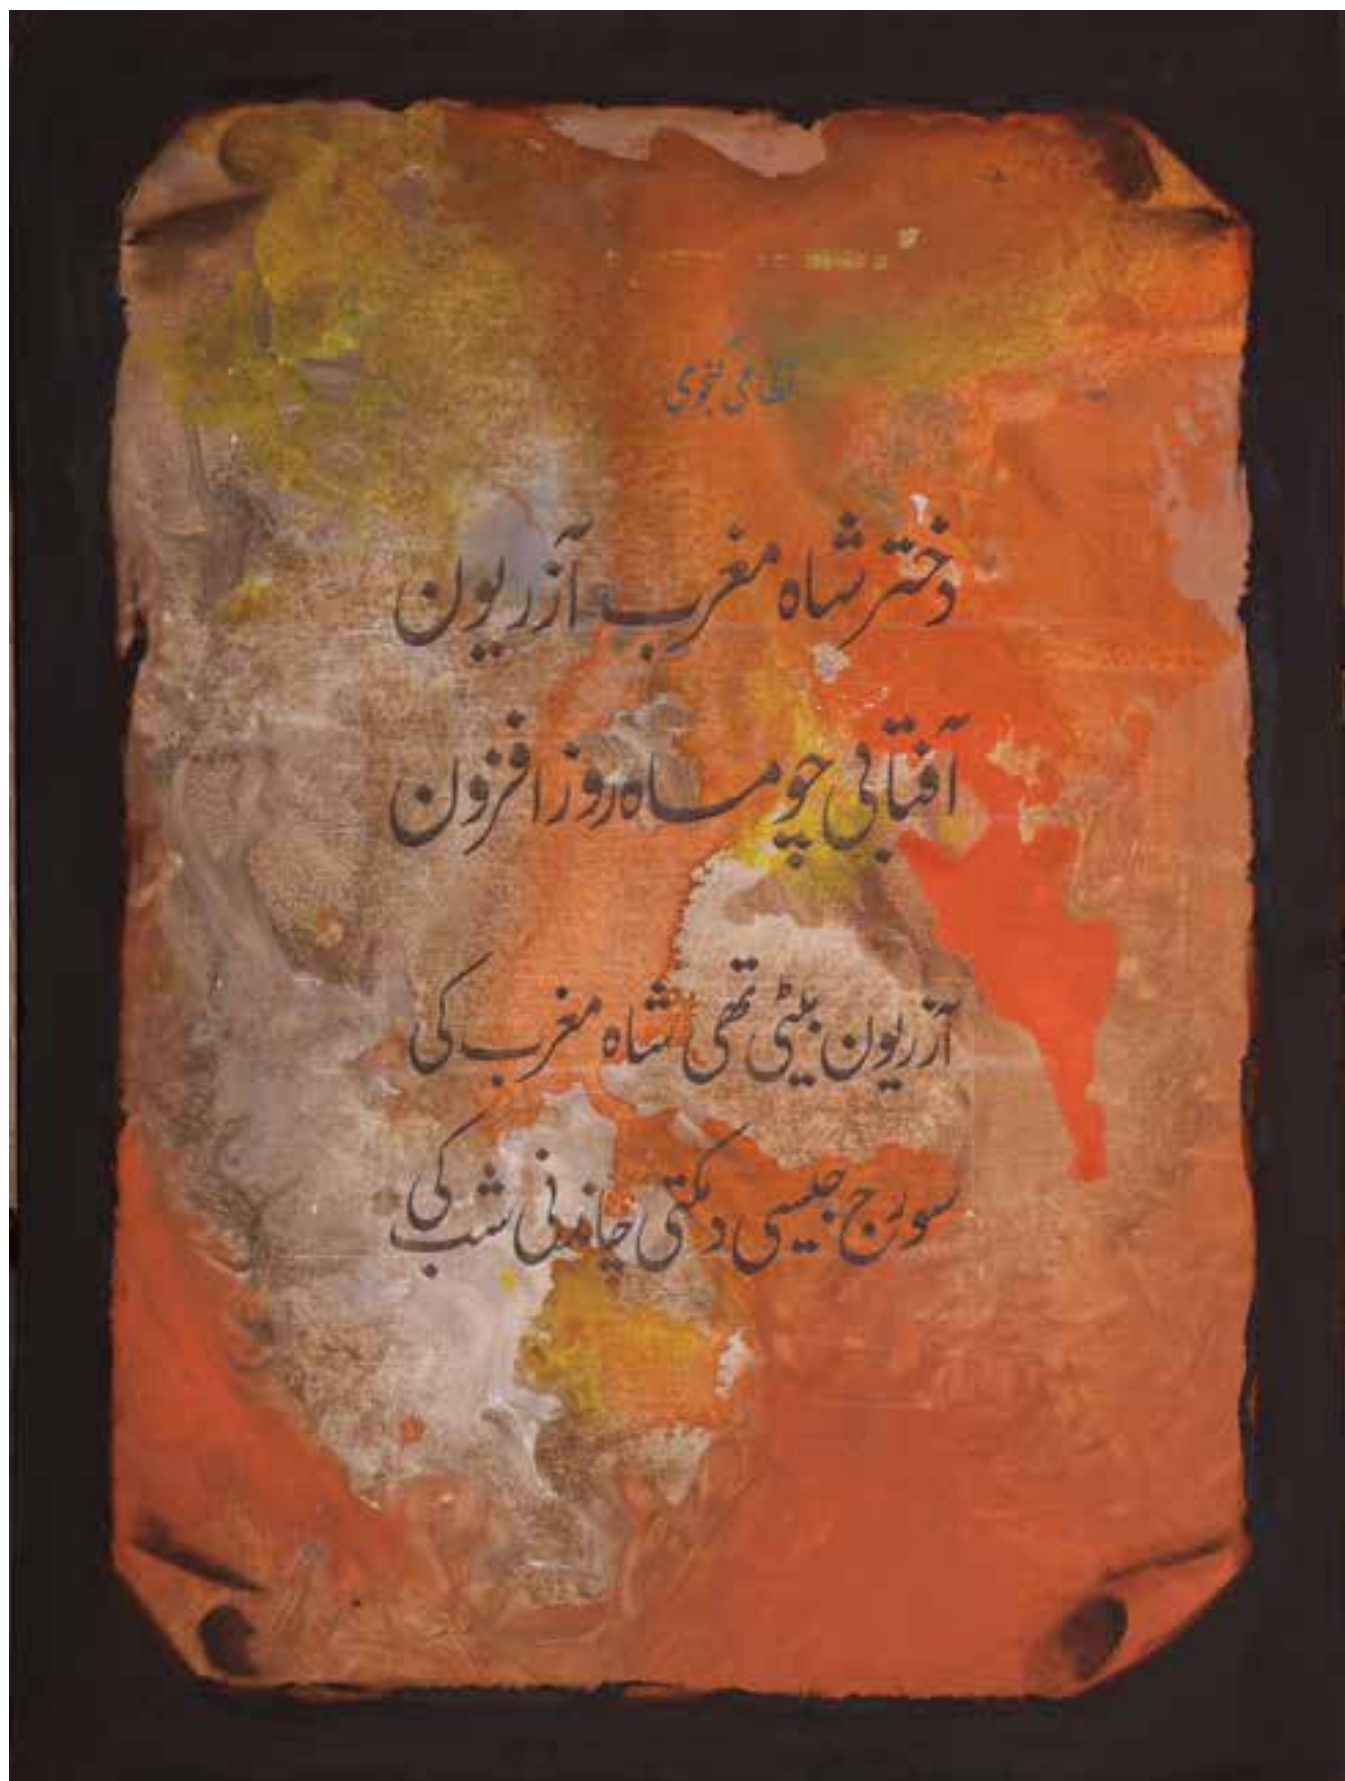 نظامی گنجوی
دختر شاہ مغرب آزریون
آفتابی چو ماہ روز افزون
آزریون بیٹی تھی شاہ مغرب کی
سورج جیسی دمکتی چاندنی شب کی